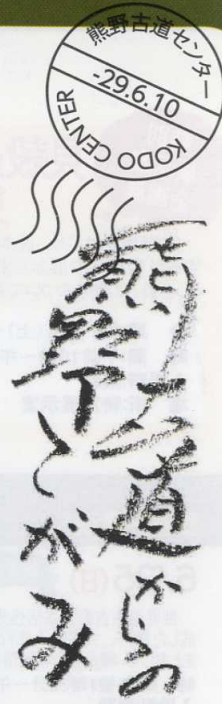 熊野古道センター
-29.6.10
KODO CENTER
熊野古道からの
てがみ